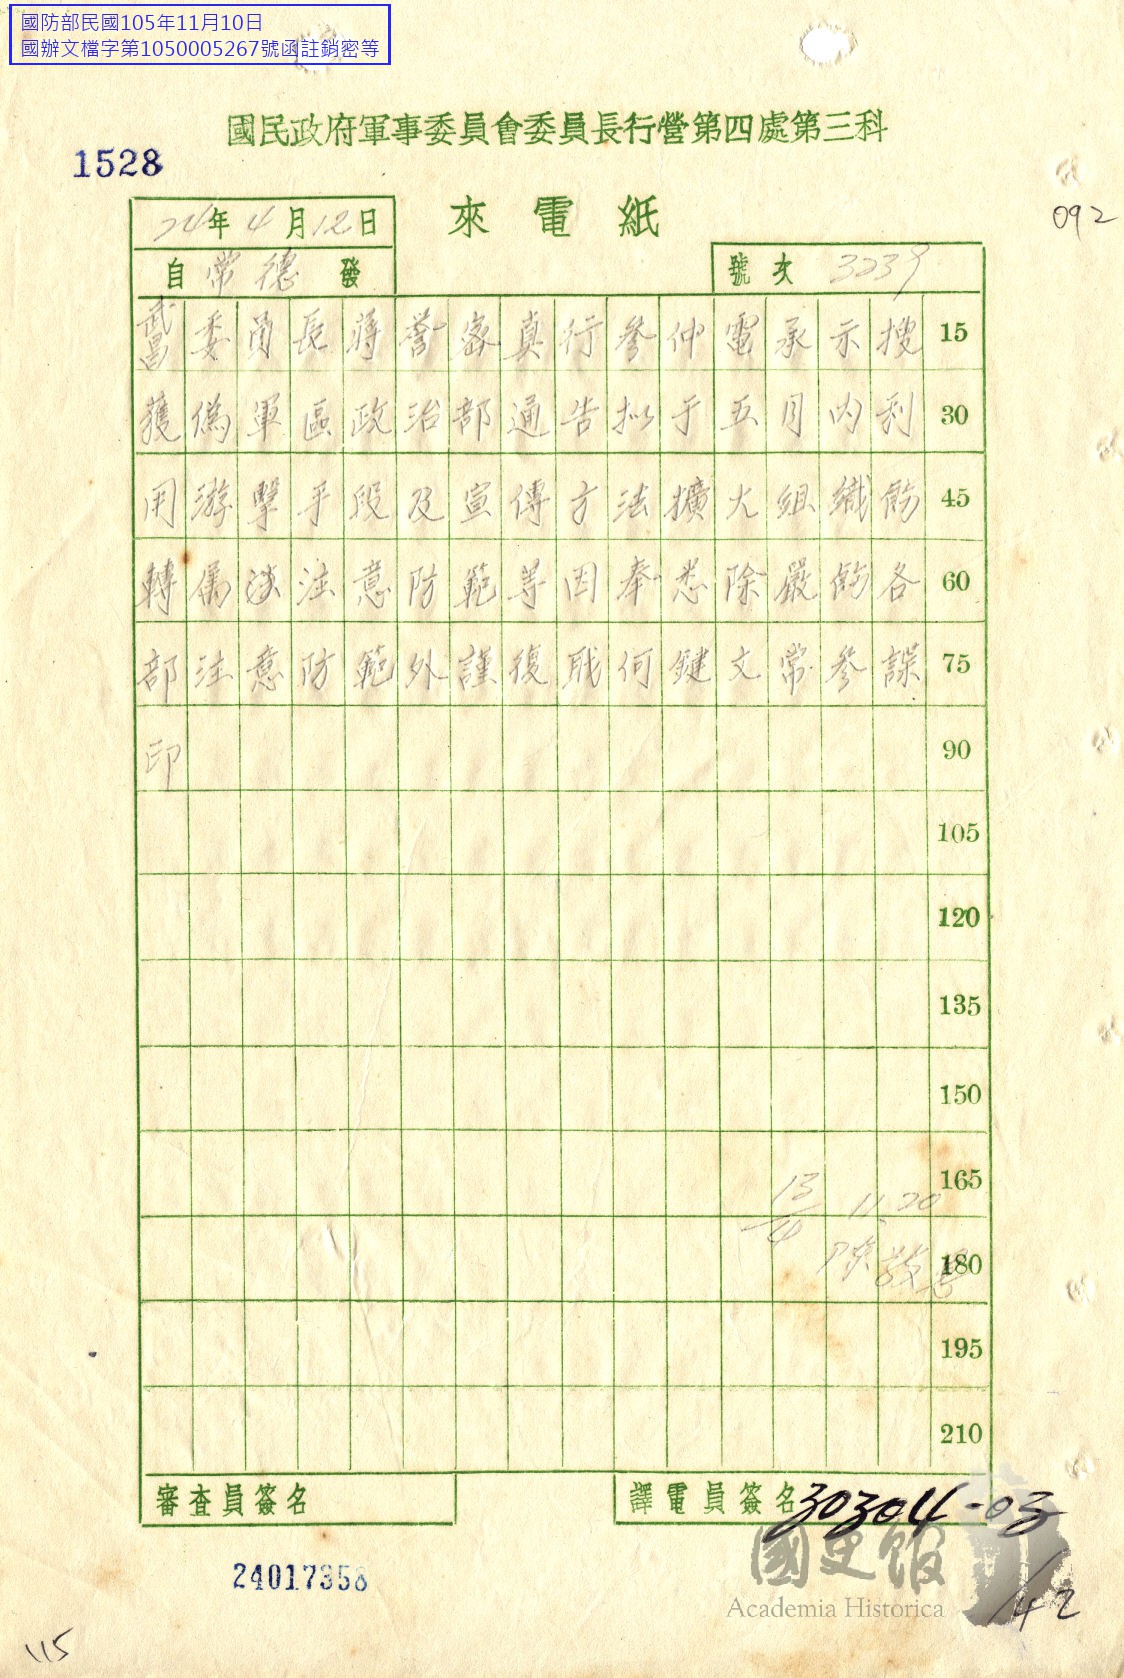 國防部民國105年11月10日
國辦文檔字第1050005267號函註銷密等
國民政府軍事委員會委員長行營第四處第三科
1528
092
來電紙
24年4月12日
自常德發
號次 3239
武昌委員長蔣譽密真行參仲電承示搜 15
獲偽軍區政治部通告拟于五月內利 30
用游擊手段及宣傳方法擴大組織飭 45
轉屬注意防範等因奉悉除嚴飭各 60
部注意防範外謹復職何鍵文常參謀 75
印 90
105
120
135
150
165
13/4 11.20
陳
180
195
210
審查員簽名
譯電員簽名
30304-03
國史館
Academia Historica
24017358
/42
115